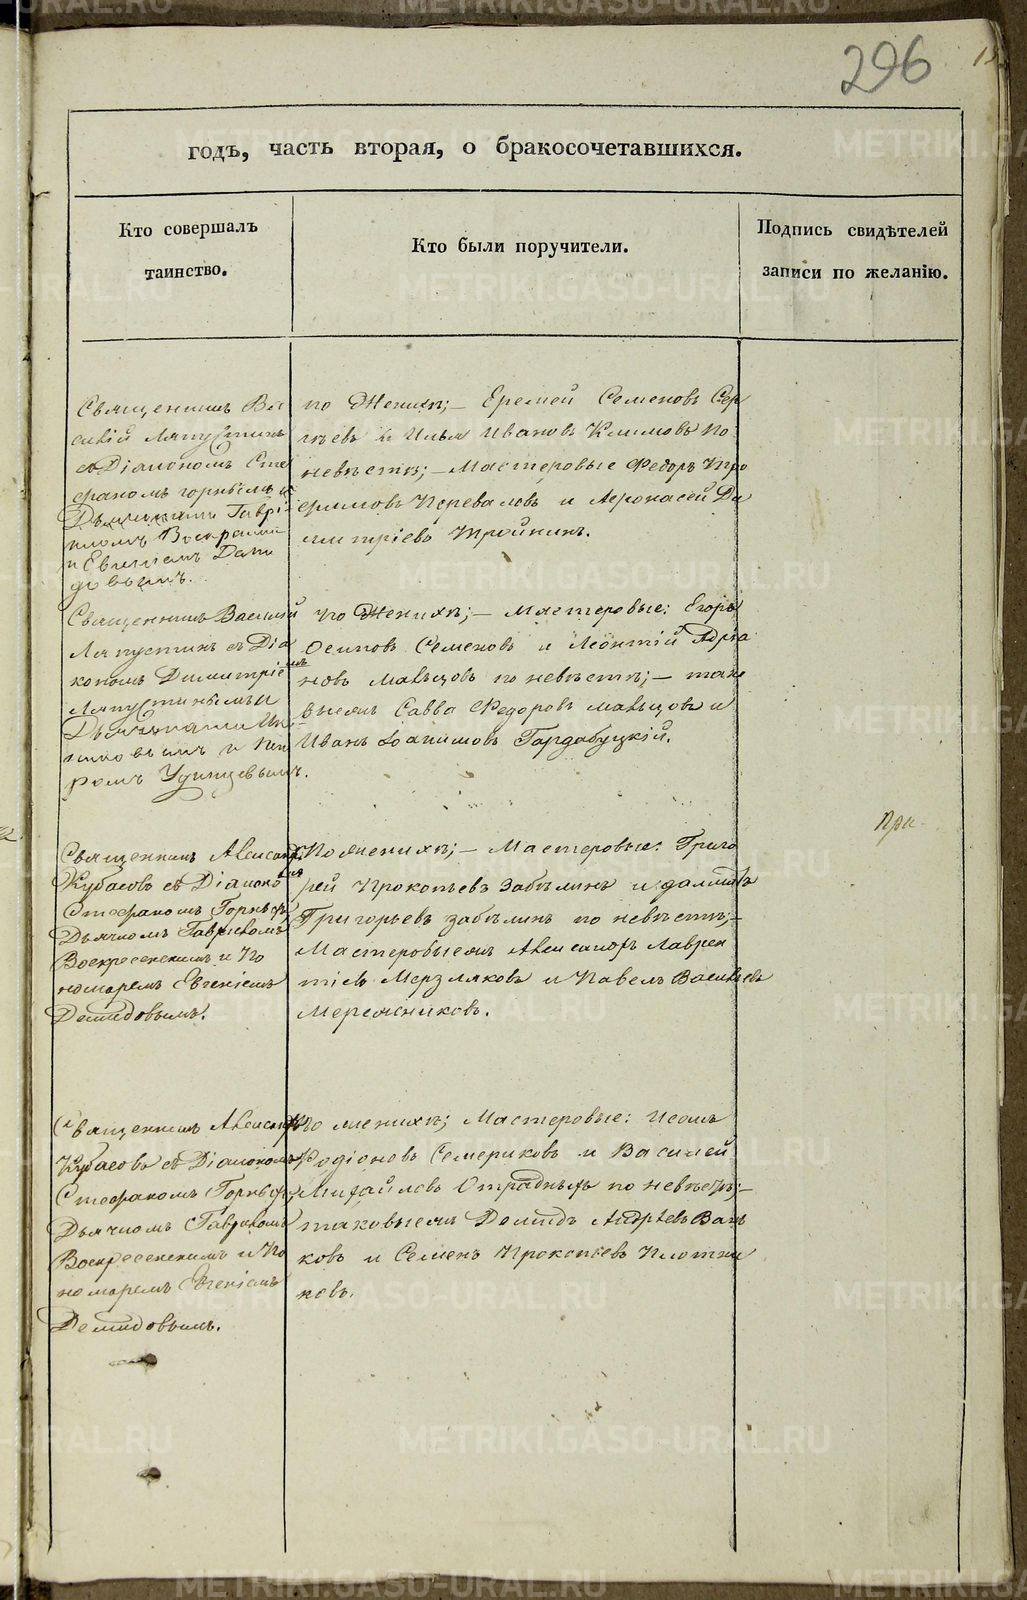 296
годъ, часть вторая, о бракосочетавшихся.
Кто совершалъ
таинство.
Кто были поручители.
Подпись свидѣтелей
записи по желанію.
Священникъ Ва
силій Ляпустинъ
съ Діакономъ Сте
фаномъ Горныхъ и
Дьячками Гаврі
иломъ Воскресен
и Евгеніемъ Деми
довымъ.
по Женихѣ; — Еремей Семеновъ Сер
гѣевъ и Илья Ивановъ Климовъ по
невѣстѣ; — Мастеровые Федоръ Тро
фимовъ Переваловъ и Афонасей Ди
митріевъ Тройнинъ.
Священникъ Василій
Ляпустинъ съ Діа
кономъ Димитріемъ
Ляпустинымъ и
Дьячками
и Пет
ромъ Удинцевымъ.
По Женихѣ; — Мастеровые: Егоръ
Осиповъ Семеновъ и Леонтій Адріа
новъ Мальцовъ по невѣстѣ; — тако
выежъ Савва Федоровъ Мальцовъ и
Иванъ Іоакимовъ Гардабуцкій.
При
Священникъ Александръ
Кубасовъ съ Діакономъ
Стефаномъ Горныхъ,
Дьячкомъ Гавриломъ
Воскресенскимъ и По
номаремъ Евгеніемъ
Демидовымъ.
По женихѣ; — Мастеровые: Григо
рей Прокопьевъ Забѣлинъ и Далматъ
Григорьевъ Забѣлинъ по невѣстѣ; —
Мастеровыежъ Александръ Лаврен
тіевъ Мерзляковъ и Павелъ Васильевъ
Мережниковъ.
Священникъ Александръ
Кубасовъ съ Діакономъ
Стефаномъ Горныхъ,
Дьячкомъ Гавриломъ
Воскресенскимъ и По
номаремъ Евгеніемъ
Демидовымъ.
По женихѣ; Мастеровые: Исакъ
Родіоновъ Семериковъ и Василей
Михайловъ Отрадныхъ по невѣстѣ; —
таковыежъ Демидъ Андрѣевъ Вань
ковъ и Семенъ Прокопьевъ Плотни
ковъ.
METRIKI.GASO-URAL.RU